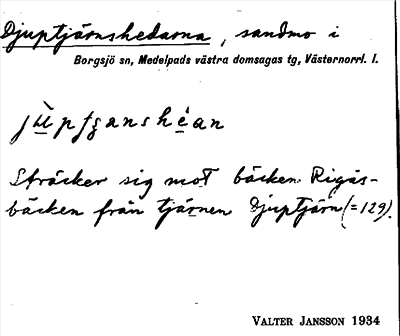 Djuptjärnshedarna, sandmo i
Borgsjö sn, Medelpads västra domsagas tg, Västernorrl. l.
Sträcker sig mot bäcken Rigås-
bäcken från tjärnen Djuptjärn (=129).
VALTER JANSSON 1934